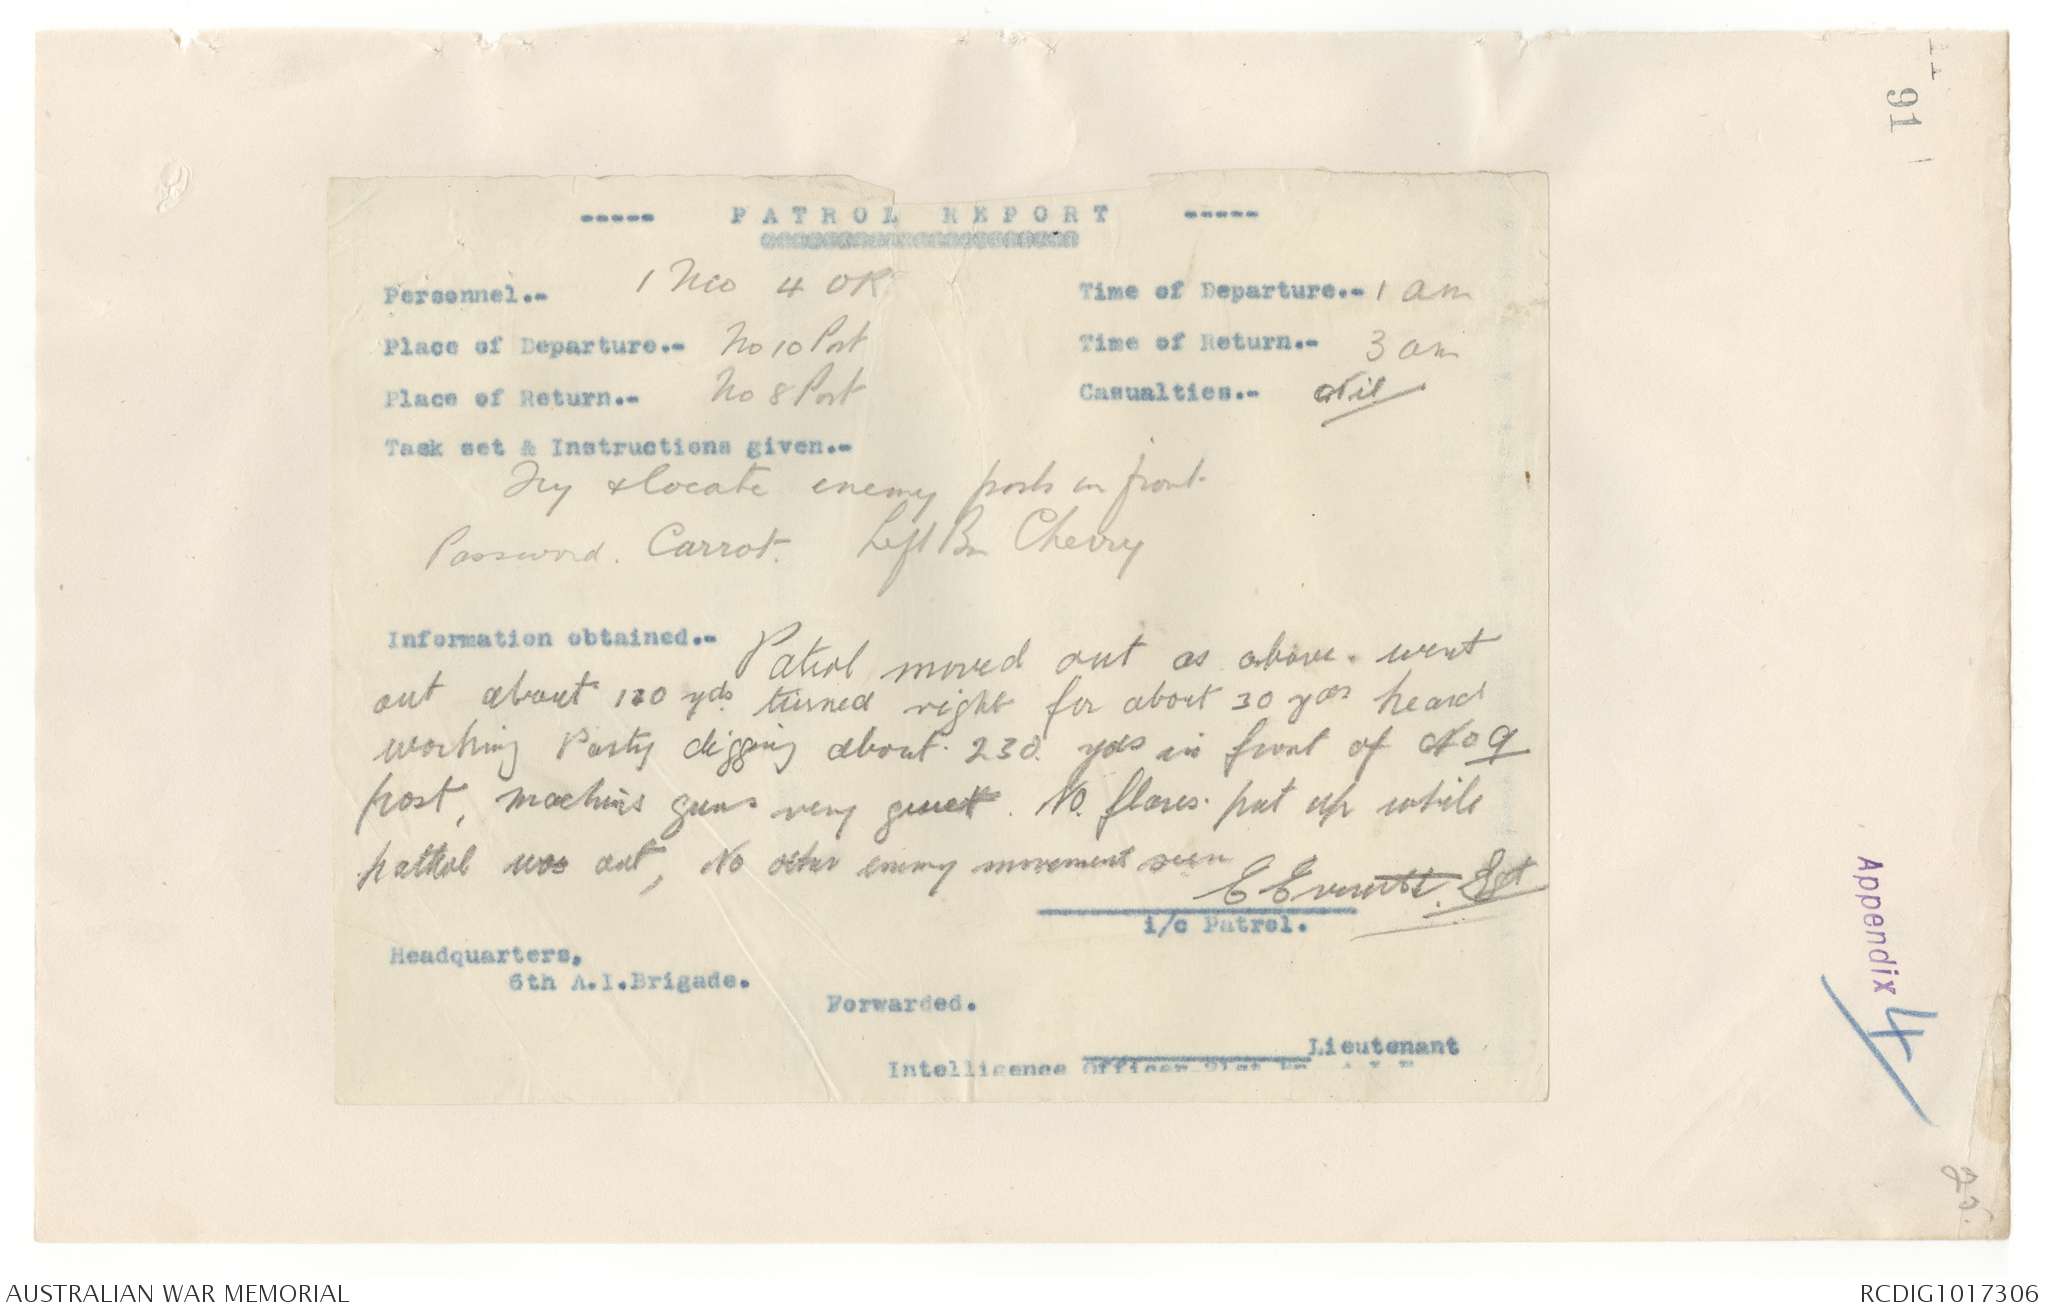 91
----- PATROL REPORT -----
Personnel.- 1 Nco 4 OR
Time of Departure.- 1 am
Place of Departure.- No 10 Post
Time of Return.- 3 am
Place of Return.- No 8 Post
Casualties.- Nil
Task set & Instructions given.-
Try & locate enemy posts in front
Password. Carrot. Left Bn Cherry
Information obtained.- Patrol moved out as above. went
out about 120 yds. turned right for about 30 yds heard
working Party digging about 230 yds in front of No 9
post, machine guns very quiet. No. flares. put up while
pattrol was out, No other enemy movement seen
E Everitt. Sgt
i/c Patrol.
Headquarters,
6th A.I.Brigade.
Forwarded.
Lieutenant
Intelligence Officer 21st Bn. A.I.F.
Appendix 4
25.
AUSTRALIAN WAR MEMORIAL
RCDIG1017306